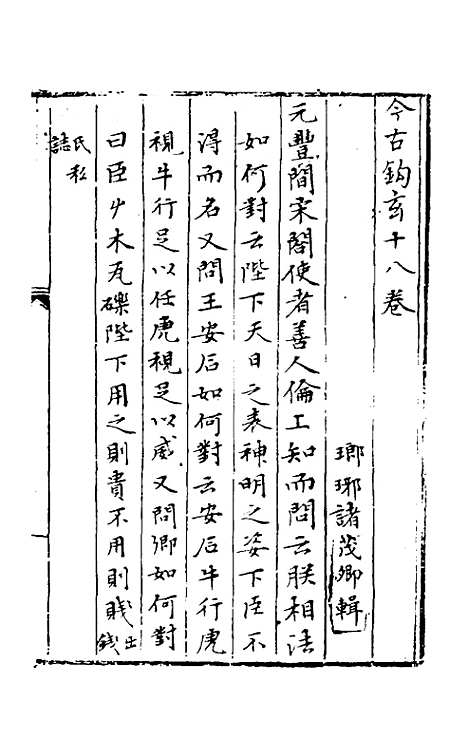 今古鈎玄十八卷
瑯琊諸茂卿輯
元豐間宋閤使者善人倫工知而問云朕相法
如何對云陛下天日之表神明之姿下臣不
得而名又問王安后如何對云安后牛行虎
視牛行足以任虎視足以威又問卿如何對
曰臣屮木瓦礫陛下用之則貴不用則賎出錢
氏私誌